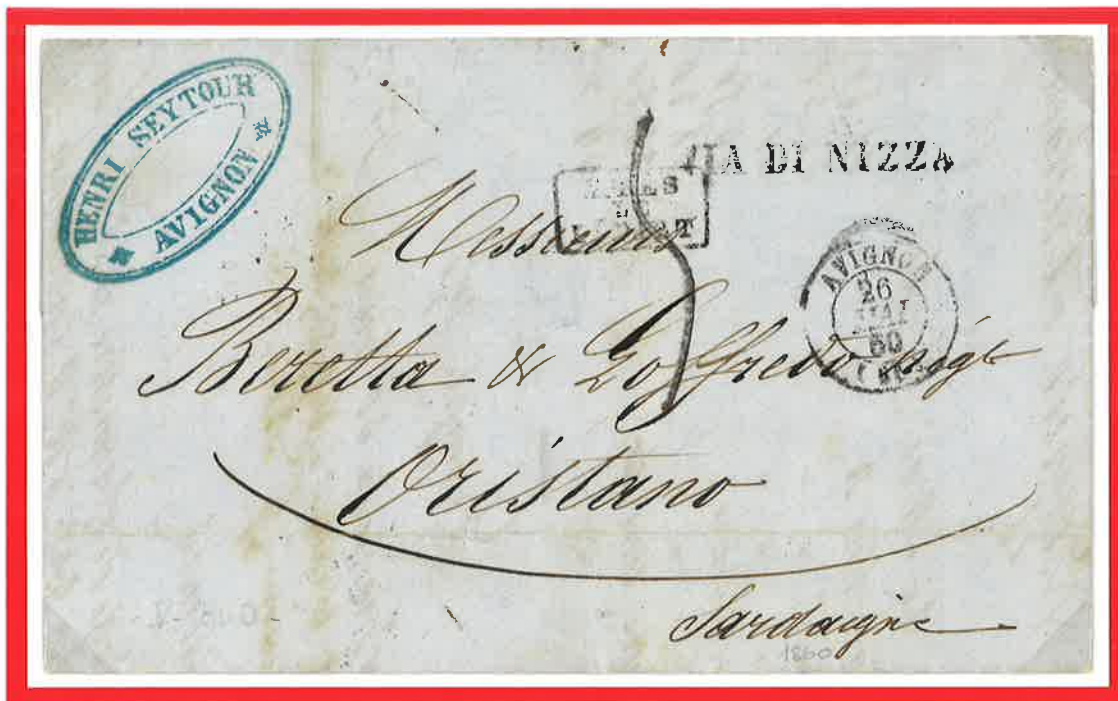 HENRI SEYTOUR
AVIGNON
VIA DI NIZZA
APRÈS
LE
DÉPART
AVIGNON
26
MAI
60
5
Messieurs
Beretta & Goffredo
Oristano
Sardaigne
1860